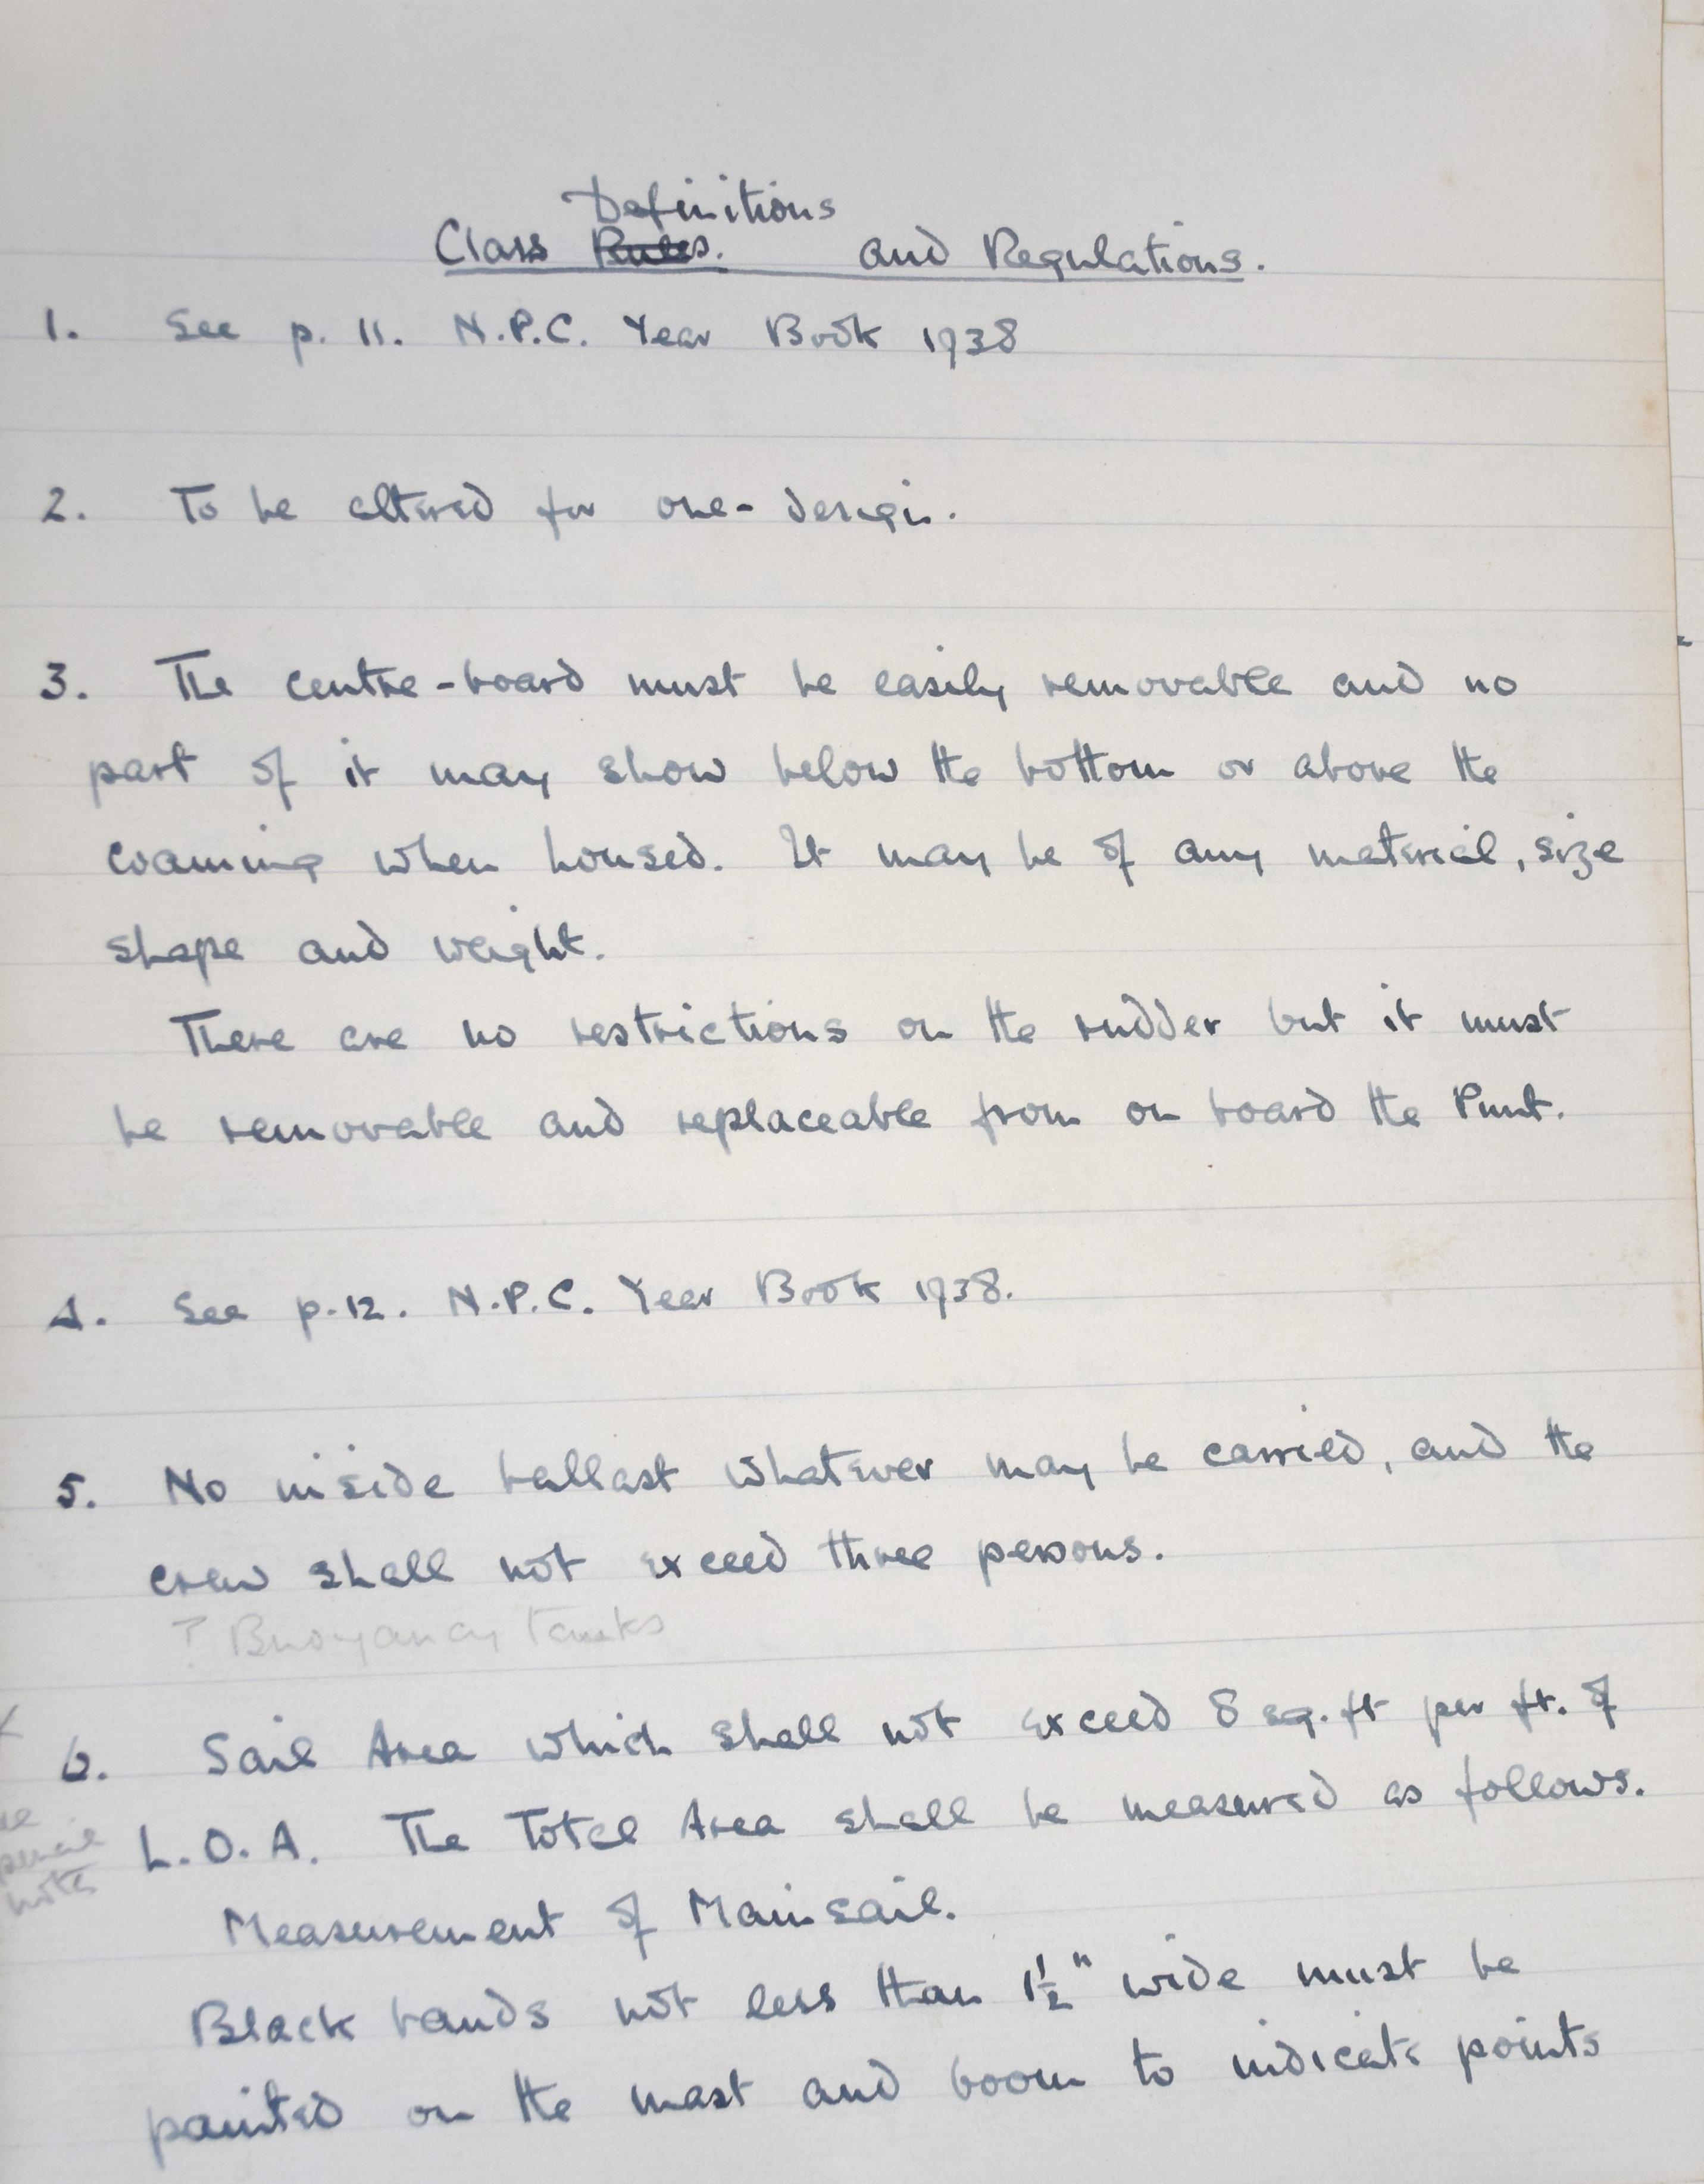 Definitions
Class Rules. and Regulations.
1. See p. 11. N.P.C. Year Book 1938
2. To be altered for one-design.
3. The centre-board must be easily removable and no
part of it may show below the bottom or above the
coaming when housed. It may be of any material, size
shape and weight.
There are no restrictions on the rudder but it must
be removable and replaceable from on board the Punt.
4. See p.12. N.P.C. Year Book 1938.
5. No inside ballast whatever may be carried, and the
crew shall not exceed three persons.
? Buoyancy tanks
6. Sail Area which shall not exceed 8 sq.ft per ft. of
L.O.A. The Total Area shall be measured as follows.
pencil
notes
Measurement of Mainsail.
Black bands not less than 1½" wide must be
painted on the mast and boom to indicate points